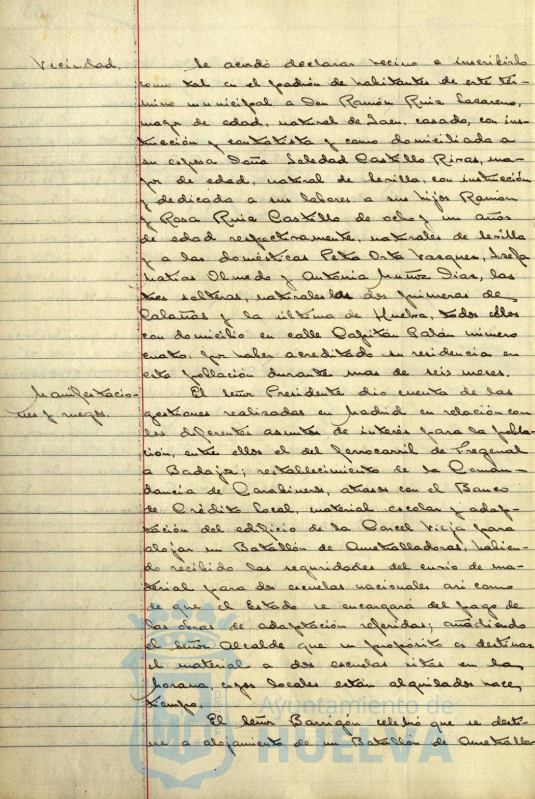 Vecindad.
Se acordó declarar vecino e inscribirlo
como tal en el padrón de habitantes de este tér-
mino municipal a Don Ramón Ruiz
mayor de edad, natural de Jaen, casado, con ins-
trucción y contratista y como domiciliada a
su esposa Doña Soledad Castillo Rivas, ma-
yor de edad, natural de Sevilla, con instrucción
y dedicada a sus labores a sus hijos Ramón
y Rosa Ruiz Castillo de ocho y un años
de edad respectivamente, naturales de Sevilla
y a las domésticas Petra Orta Vazquez, Josefa
Matias Olmedo y Antonia Muñoz Dias, las
tres solteras, naturales las dos primeras de
Calañas y la última de Huelva, todos ellos
con domicilio en calle Capitán Galán número
cuatro, por haber acreditado su residencia en
esta población durante mas de seis meses.
Manifestacio-
nes y ruegos.
El señor Presidente dio cuenta de las
gestiones realizadas en Madrid en relación con
los diferentes asuntos de interés para la pobla-
ción, entre ellos el del ferrocarril de Fregenal
a Badajoz; restablecimiento de la Coman-
dancia de Carabineros, atrasos con el Banco
de Crédito Local, material escolar y adap-
tación del edificio de la Carcel Vieja para
alojar un Batallón de Ametralladoras, habien-
do recibido las seguridades del envio de ma-
terial para dos escuelas nacionales asi como
de que el Estado se encargará del pago de
las obras de adaptación referidas; añadiendo
el señor Alcalde que su propósito es destinar
el material a dos escuelas sitas en la
Morana, cuyos locales están alquilados hace
tiempo.
El señor Barrigón celebró que se desti-
ne a alojamiento de un Batallón de Ametralla-
Ayuntamiento de
HUELVA